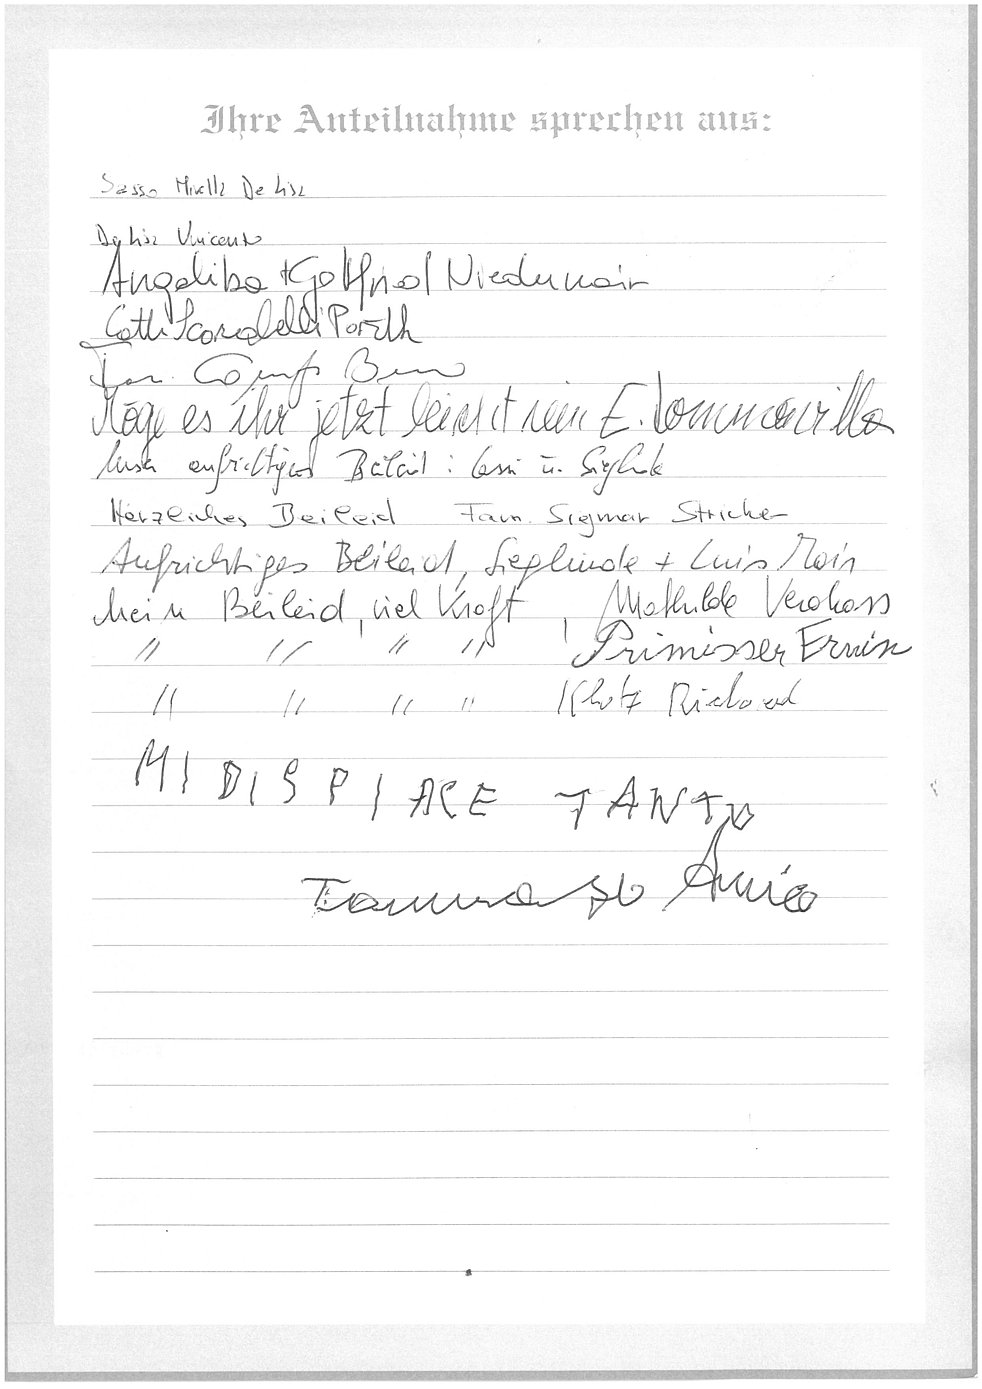 Ihre Anteilnahme sprechen aus:
Sasso Mirella De Lisa
De Lisa Vincenzo
Angelika + Gottfried Niedermair
Fam.
Möge es ihr jetzt leicht sein E.
aufrichtiges Beileid : u. Sieglinde
Herzliches Beileid Fam. Sigmar Stricker
Aufrichtiges Beileid, Sieglinde + Luis Mair
Mein Beileid, viel Kraft, Mathilde
" " " " Primisser Erwin
" " " " Klotz Richard
MI DISPIACE TANTO
Tommaso